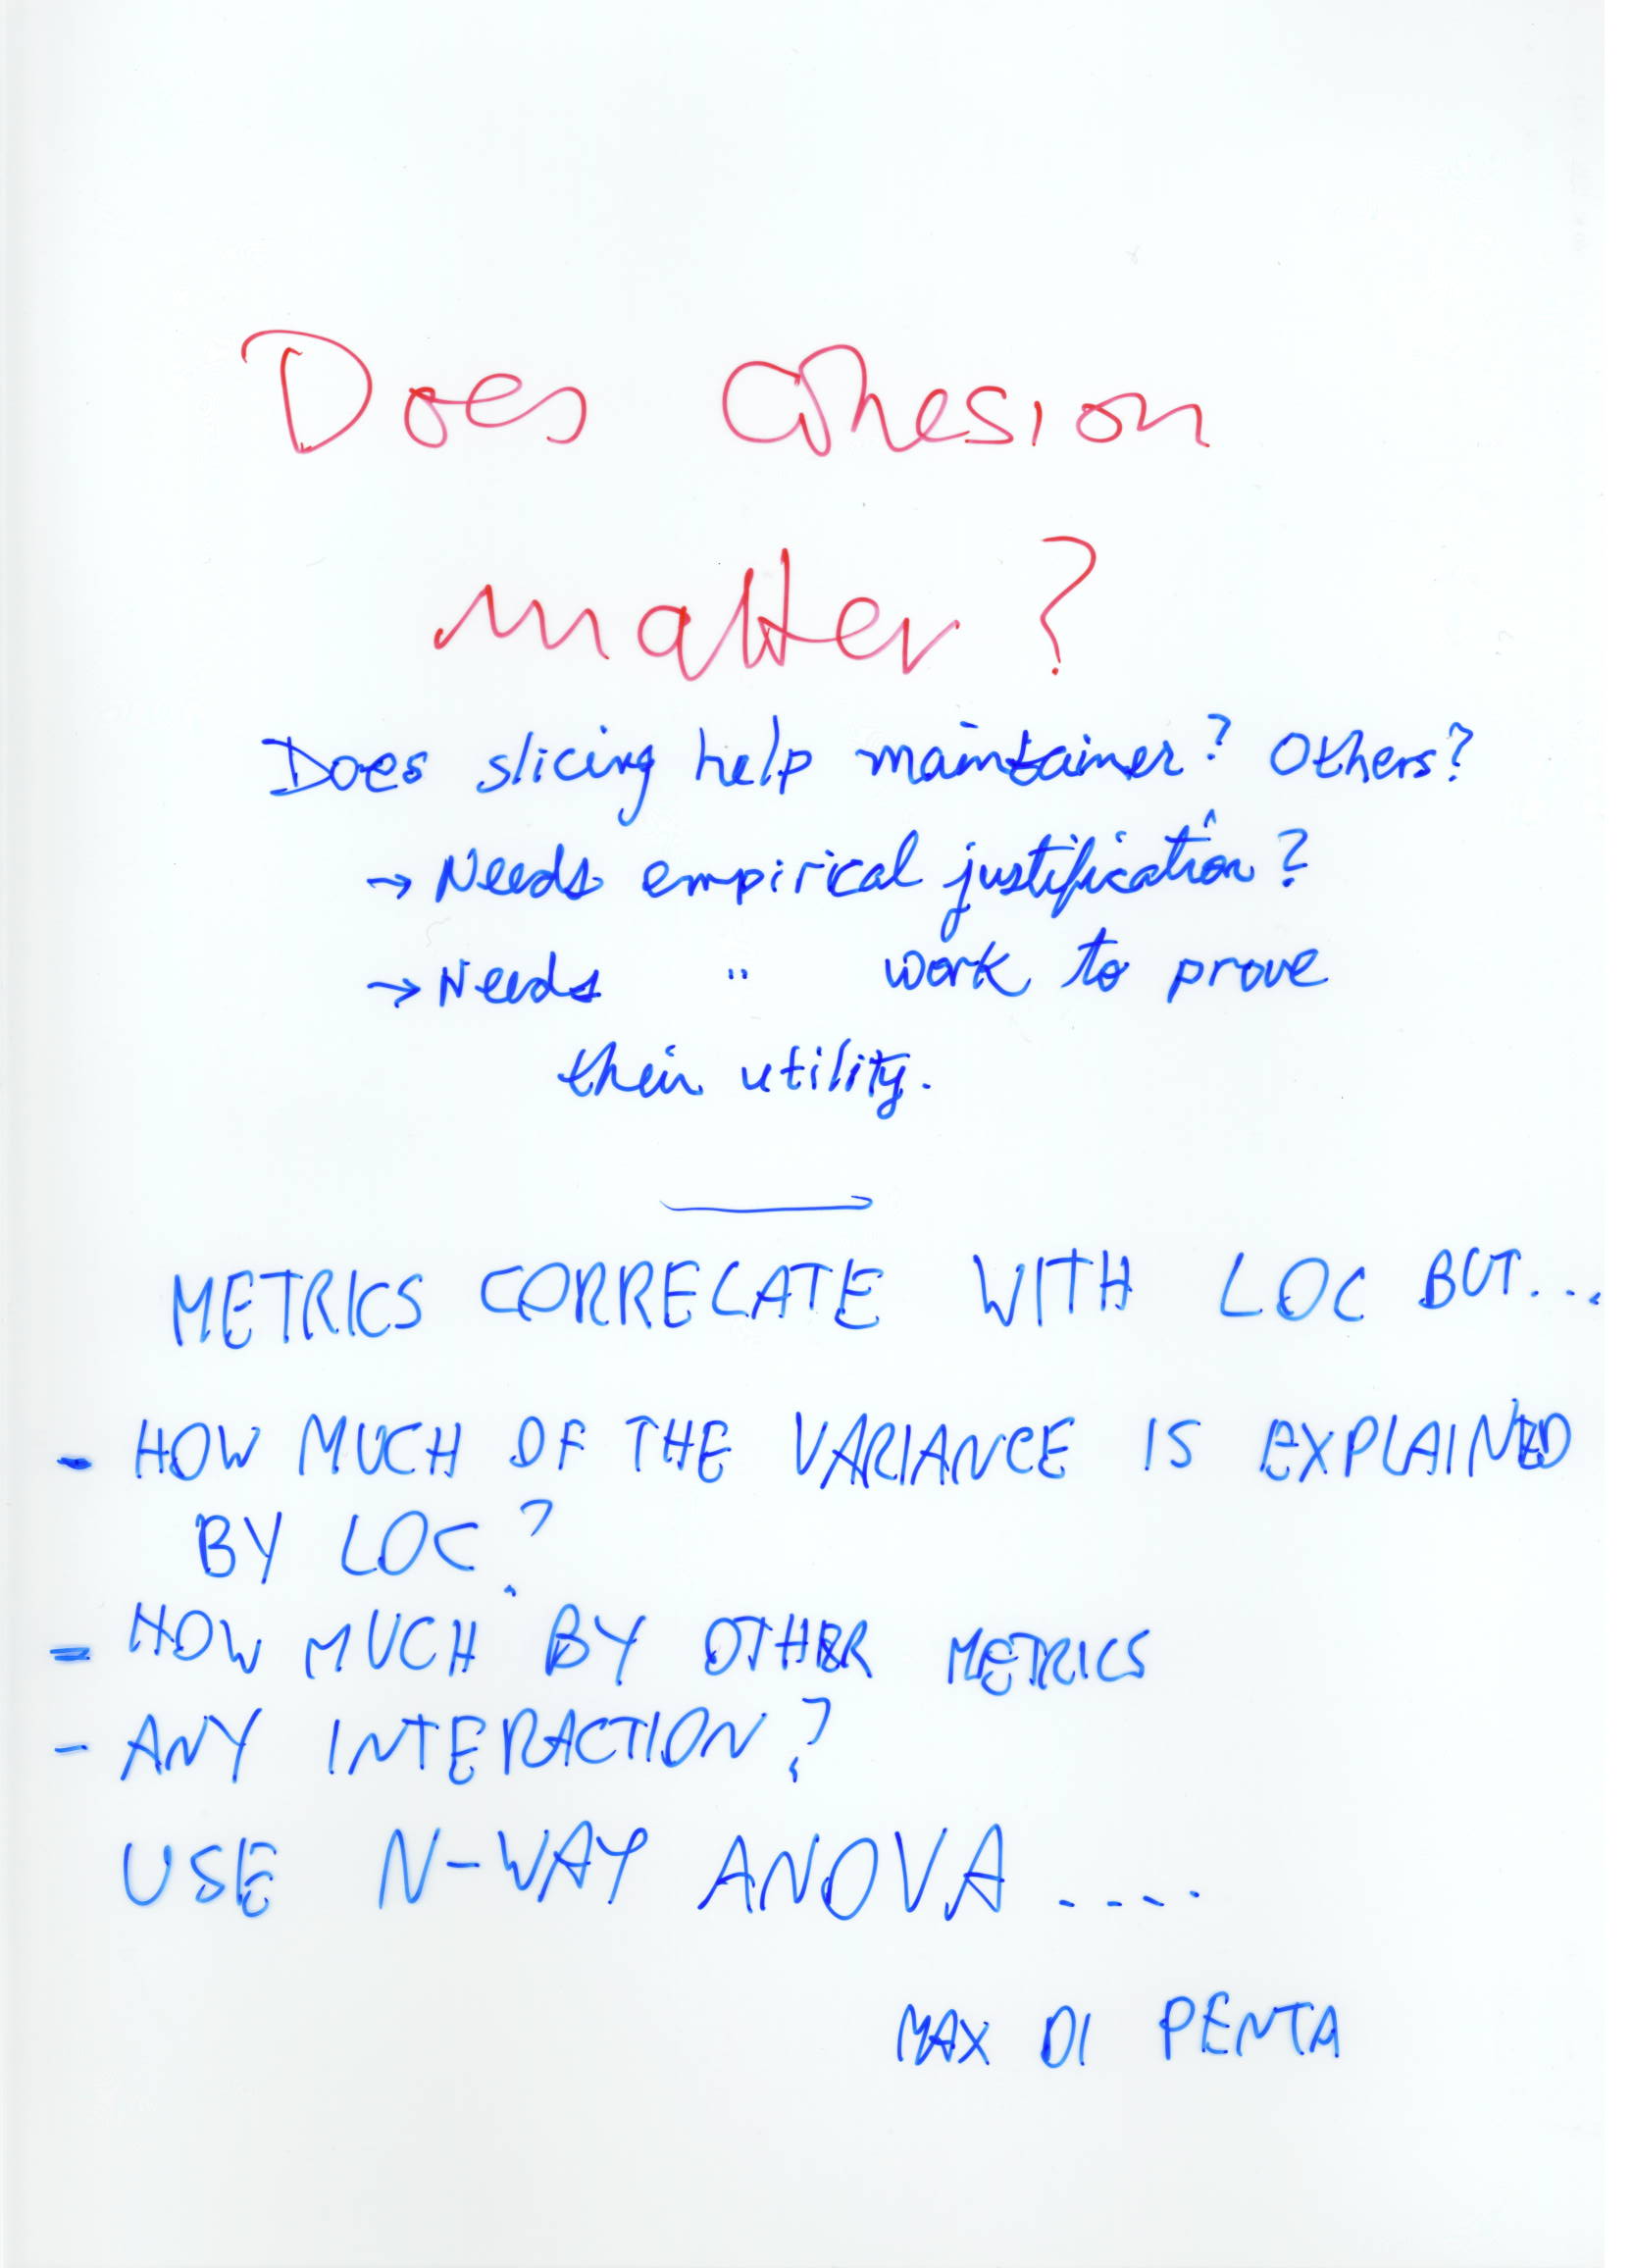 Does Cohesion
matter?
Does slicing help maintainer? Others?
→ Needs empirical justification?
→ Needs " work to prove
their utility.
METRICS CORRELATE WITH LOC BUT...
- HOW MUCH OF THE VARIANCE IS EXPLAINED
BY LOC?
= HOW MUCH BY OTHER METRICS
- ANY INTERACTION?
USE N-WAY ANOVA ....
MAX DI PENTA